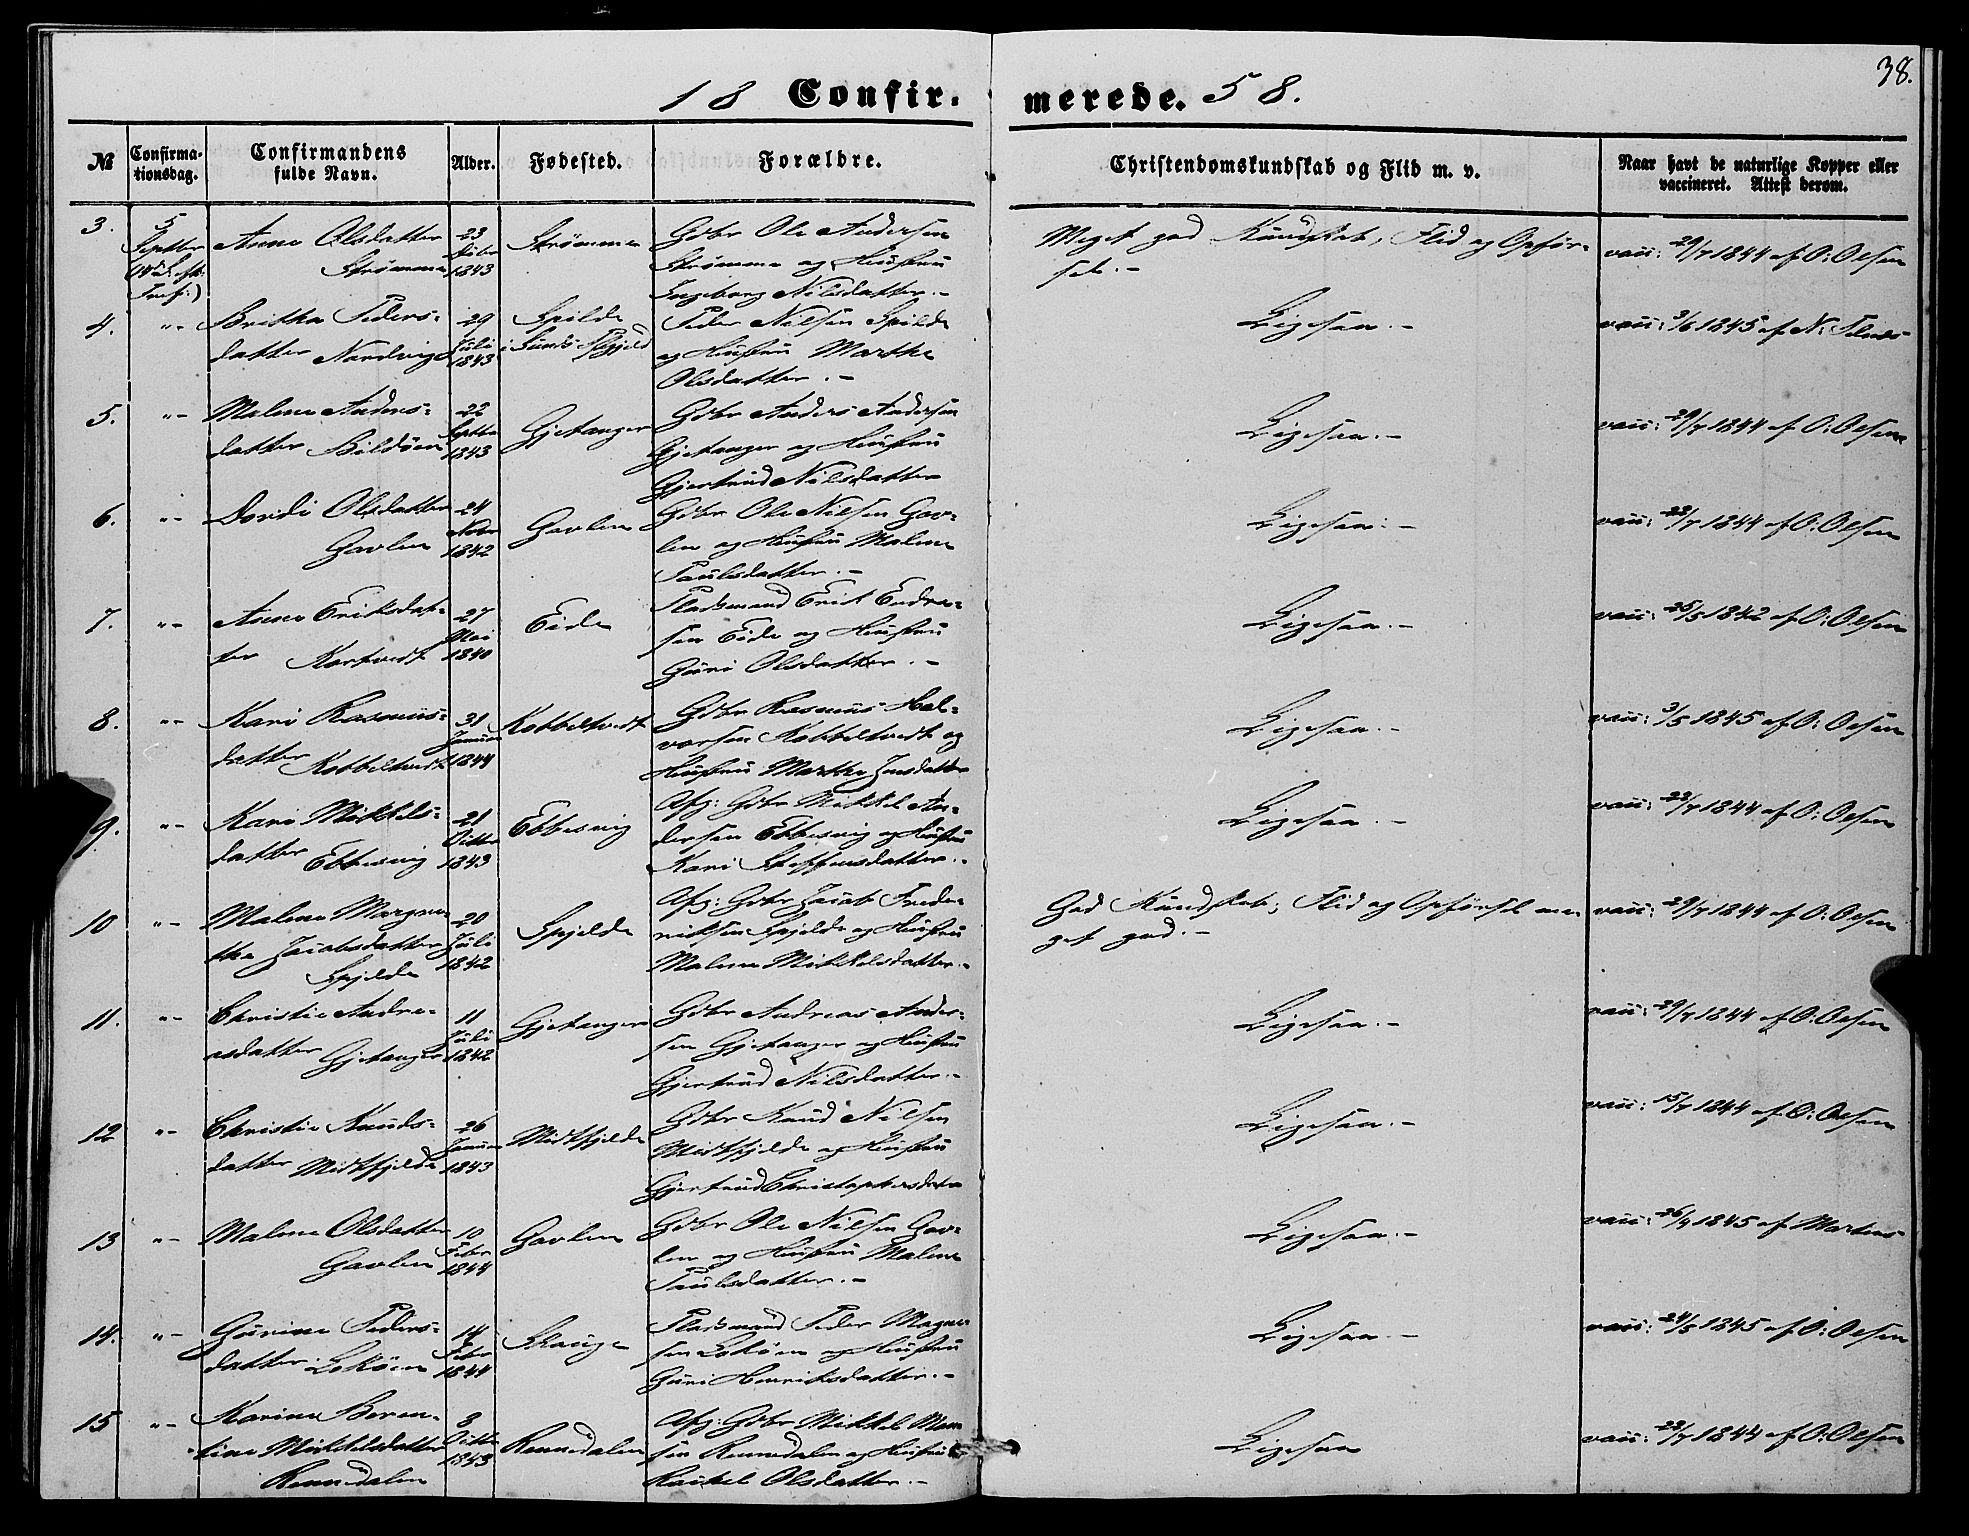 38.
18 Confir. merede. 58.
№ Confirma-tionsdag. Confirmandens fulde Navn. Alder. Fødested. Forældre. Christendomskundskab og Flid m. v. Naar havt de naturlige Kopper eller vaccineret. Attest derom.
3. 5 Septbr
Anne Olsdatter
Strømme
23
1843
Strømme
Gdbr Ole Andersen
Strømme og Hustru
Ingeborg Nilsdatter.-
Meget god Kundskab, Flid og Opfør-
sel.-
vacc: 29/7 1844 af O: Olsen
4. "-
Britha Peders-
datter Nordvig
29
Juli
1843
Spilde
i Sunds Pgjeld
Peder Nilsen Spilde
og Hustru Marthe
Olsdatter.-
Ligesaa.-
vacc: 3/6 1845 af N:
5. "-
Malene Anders-
datter Bildöen
22
Septbr
1843
Gjetanger
Gdbr Anders Andersen
Gjetanger og Hustru
Gjertrud Nilsdatter
Ligesaa.-
vacc: 29/7 1844 af O: Olsen
6. "-
Dordi Olsdatter
Gavlen
24
Novbr
1842
Gavlen
Gdbr Ole Nilsen Gav-
len og Hustru Malene
Paulsdatter.-
Ligesaa.-
vacc: 22/7 1844 af O: Olsen
7. "-
Anne Eriksdat-
ter Kortvedt
27
Mai
1840
Eide
Pladsmand Erik Endre-
sen Eide og Hustru
Guri Olsdatter.-
Ligesaa.-
vacc: 25/5 1842 af O: Olsen
8. "-
Kari Rasmus-
datter Kobbeltvedt
31
Januar
1844
Kobbeltvedt
Gdbr Rasmus Hal-
vorsen Kobbeltvedt og
Hustru Marthe Jensdatter
Ligesaa.-
vacc: 3/5 1845 af O: Olsen
9. "-
Kari Mikkels-
datter Ebbesvig
21
Octbr
1843
Ebbesvig
Afg: Gdbr Mikkel An-
dersen Ebbesvig og Hustru
Kari Steffensdatter.-
Ligesaa.-
vacc: 22/7 1844 af O: Olsen
10 "-
Malene Margre-
the Jacobsdatter
Spjelde
20
Juli
1842
Spjelde
Afg: Gdbr Jacob Frede-
riksen Spjelde og Hustru
Malene Mikkelsdatter.-
God Kundskab; Flid og Opførsel me-
get god.-
vacc: 29/7 1844 af O: Olsen
11. "-
Christie Andre-
asdatter Gjetanger
11
Juli
1842
Gjetanger
Gdbr Andreas Ander-
sen Gjetanger og Hustru
Gjertrud Nilsdatter.-
Ligesaa.-
vacc: 29/7 1844 af O: Olsen
12 "-
Christie Knuds-
datter Midtfjelde
26
Januar
1843
Midtfjelde
Gdbr Knud Nilsen
Midtfjelde og Hustru
Gjertrud Christophersdatter
Ligesaa.-
vacc: 15/7 1844 af O: Olsen
13 "-
Malene Olsdatter
Gavlen
10
Febr
1844
Gavlen
Gdbr Ole Nilsen Gav-
len og Hustru Malene
Paulsdatter.-
Ligesaa.-
vacc: 26/9 1845 af Martens
14. "-
Gurine Peders-
datter Lokøen
14
Febr
1844
Skauge
Pladsmand Peder Magne-
sen Lokøen og Hustru
Guri Henriksdatter.-
Ligesaa.-
vacc: 24/5 1845 af O: Olsen
15 "-
Karine Beren-
tine Mikkelsdatter
Rennedalen
8
Octbr
1843
Rennedalen
Afg: Gdbr Mikkel
sen Rennedalen og Hustru
Rachel Olsdatter.-
Ligesaa
vacc: 22/7 1844 af O: Olsen